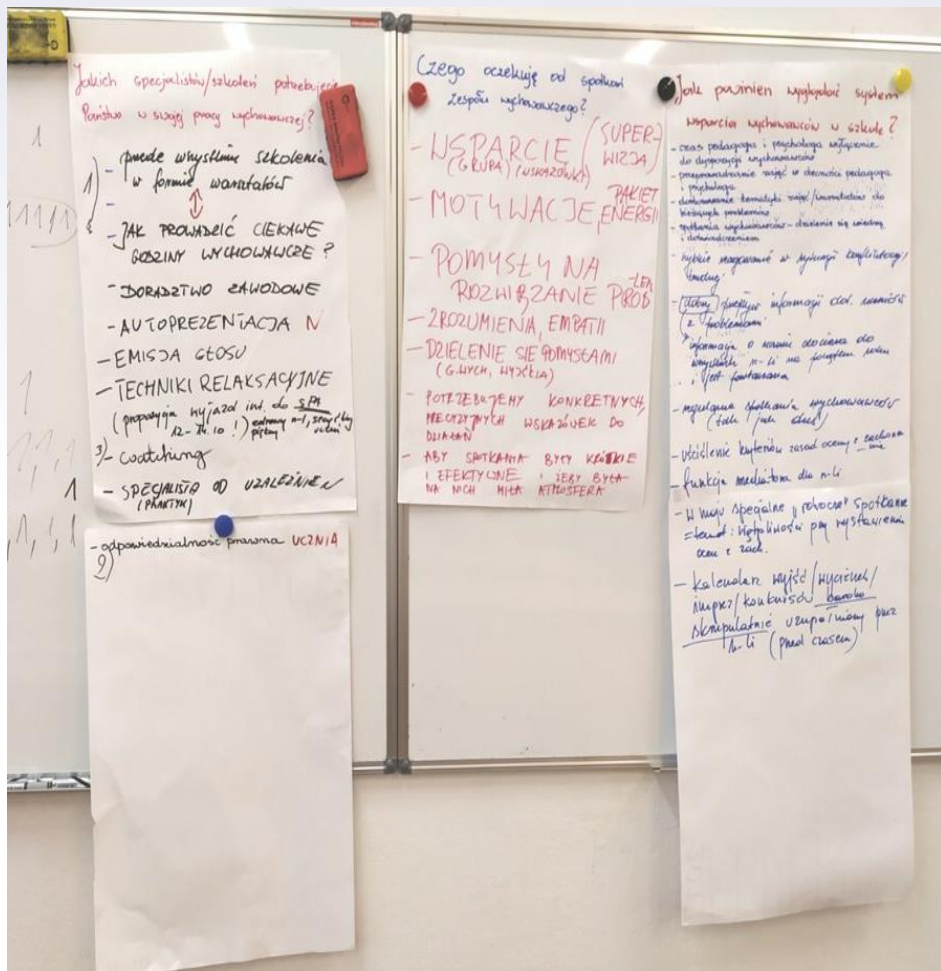 Jakich specjalistów/szkoleń potrzebujecie
Państwo w swojej pracy wychowawczej?
1)
- przede wszystkim szkolenia
w formie warsztatów
-
- JAK PROWADZIĆ CIEKAWE
GODZINY WYCHOWAWCZE?
- DORADZTWO ZAWODOWE
- AUTOPREZENTACJA N
- EMISJA GŁOSU
- TECHNIKI RELAKSACYJNE
(propozycja wyjazd int. do SPA
12-14.10!)
3)- coatching
- SPECJALISTA OD UZALEŻNIEŃ
(PRAKTYK)
- odpowiedzialność prawna UCZNIA
2)
Czego oczekuję od spotkań
zespołu wychowawczego?
- WSPARCIE / SUPER-
(GRUPA) (WSKAZÓWKI) WIZJA)
- MOTYWACJE, PAKIET
ENERGII
- POMYSŁY NA
ROZWIĄZANIE PROB-
LEM
- ZROZUMIENIA, EMPATII
- DZIELENIE SIĘ POMYSŁAMI
(G.WYCH,
- POTRZEBUJEMY KONKRETNYCH,
PRECYZYJNYCH WSKAZÓWEK DO
DZIAŁAŃ
- ABY SPOTKANIA BYŁY KRÓTKIE
I EFEKTYWNE I ŻEBY BYŁA
NA NICH MIŁA ATMOSFERA
Jak powinien wyglądać system
wsparcia wychowawców w szkole?
- czas pedagoga i psychologa wyłącznie
do dyspozycji wychowawców
- przeprowadzanie zajęć w obecności pedagoga
i psychologa
- dostosowanie tematyki zajęć/warsztatów do
bieżących problemów
- spotkania wychowawców - dzielenie się wiedzą
i doświadczeniem
- szybkie reagowanie w sytuacji konfliktowej/
trudnej
- dobry przepływ informacji dot. uczniów
z problemami
informacja o uczniu dociera do
wszystkich n-li na początku roku
i jest powtarzana
- regularne spotkania wychowawców
(tak jak dziś)
- uściślenie kryteriów zasad oceny z zachowa-
nia
- funkcja mediatora dla n-li
- W maju specjalne "robocze" spotkanie
= temat: wątpliwości przy wystawieniu
ocen z zach.
- Kalendarz wyjść/wycieczek/
imprez/konkursów bardzo
skrupulatnie uzupełniany przez
n-li (przed czasem)